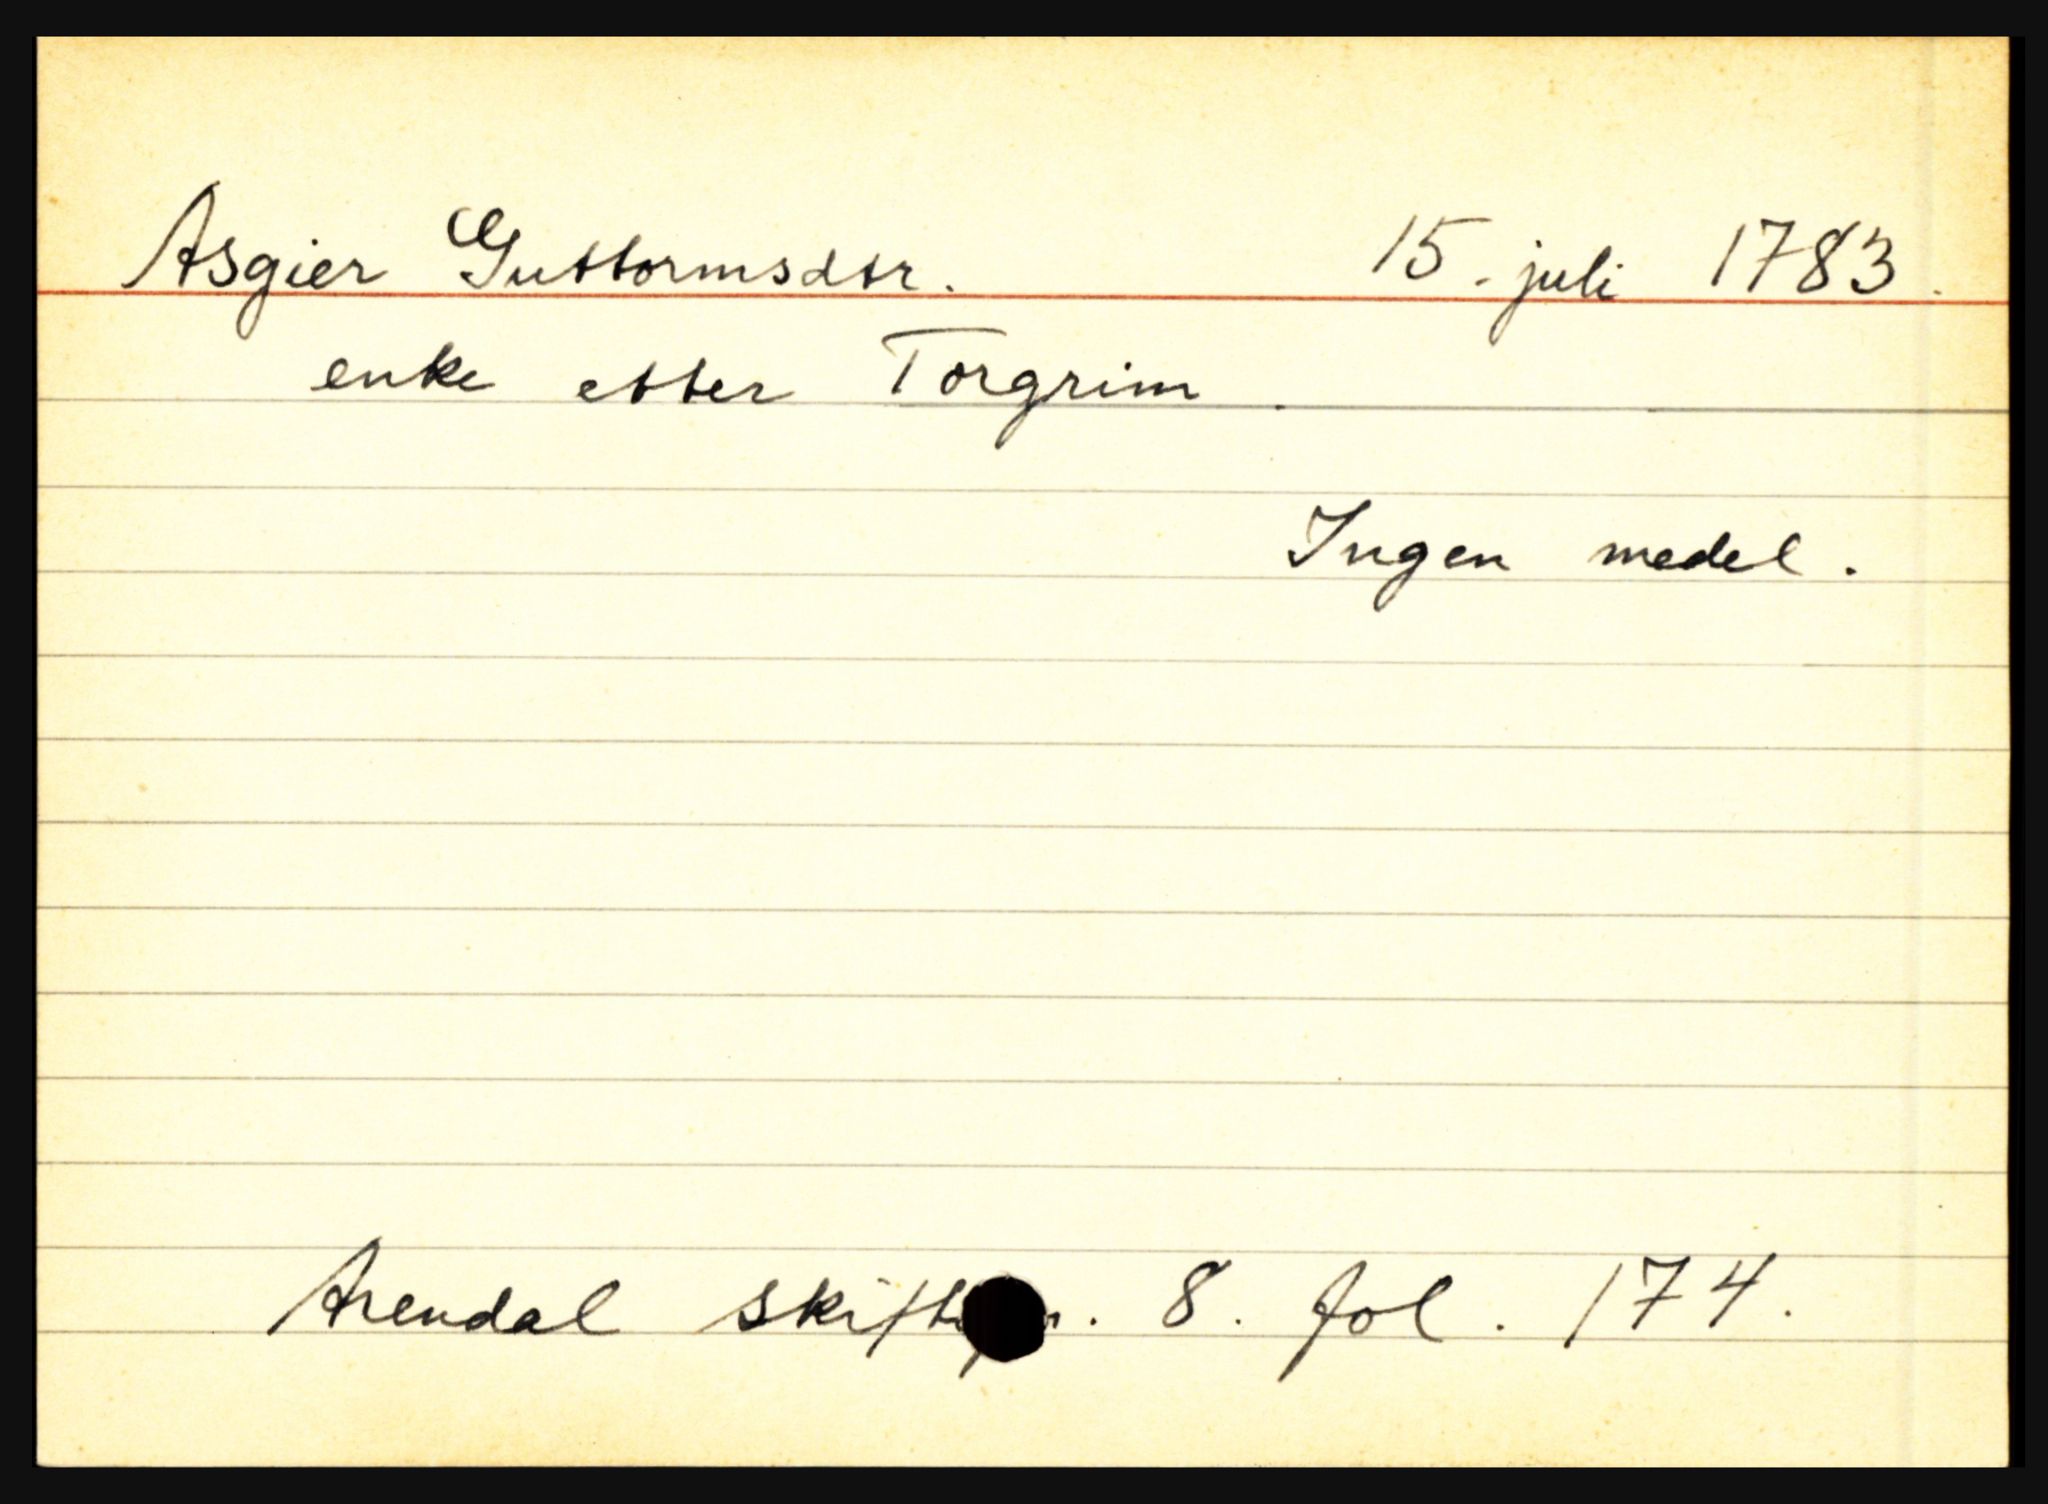 Asgier Guttormsdtr. 15. juli 1783.
enke etter Torgrim.
Ingen medel.
Arendal 8. fol. 174.